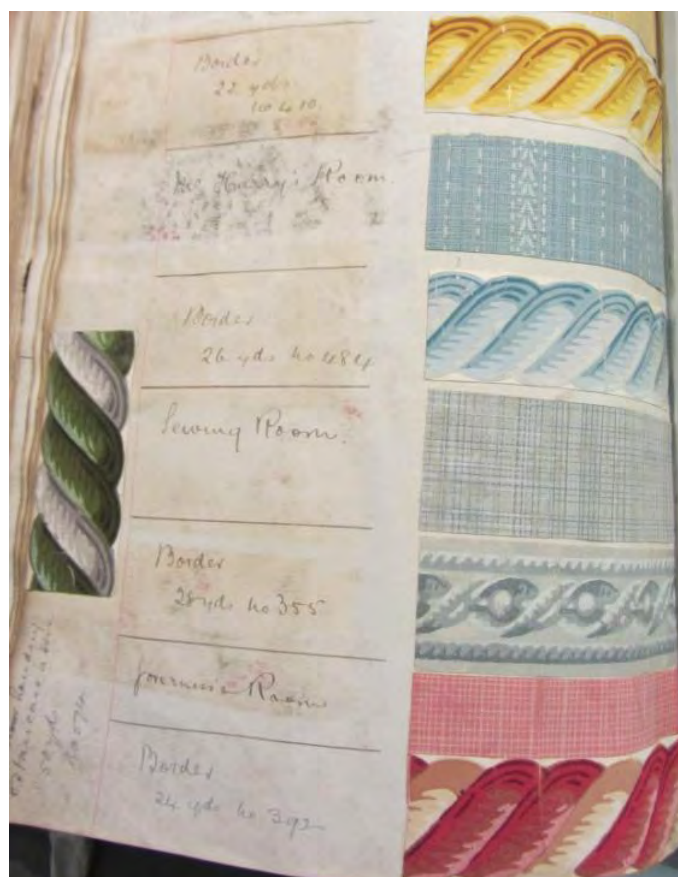 Border
22 yds
no 410.
Mr Harry's Room.
Border
26 yds no 484
Sewing Room.
Border
28 yds no 355
Room
Border
24 yds no 392
50 yds